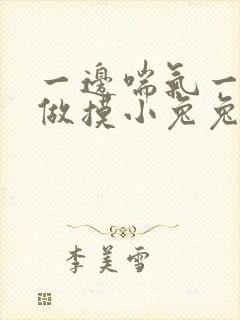 一邊喘氣一
做摸小兔兔
李美雪